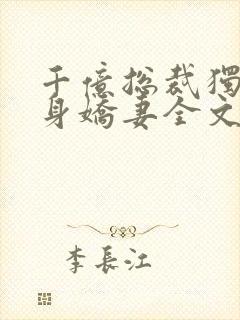 千億總裁獨
身嬌妻全文
李長江